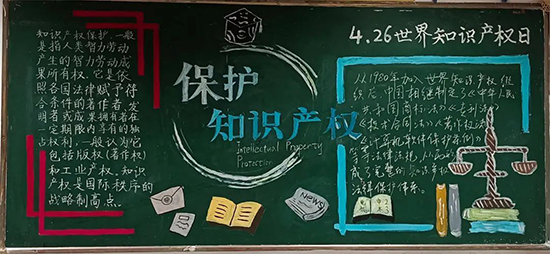 知识产权保护,一般
是指人类智力劳动
产生的智力劳动成
果所有权.它是依
照各国法律赋予符
合条件的著作者,发
明者或成果拥有者在
一定期限内享有的独
占权利,一般认为它
包括版权(著作权)
和工业产权.知识
产权是国际秩序的
战略制高点。
保护
知识产权
Intellectual Property
Protection
NEWS
4.26世界知识产权日
从1980年加入世界知识产权组
织后,中国相继制定了《中华人民
共和国商标法》《专利法》
《技术合同法》《著作权法》
《计算机软件保护条例》
等等法律法规,从而
成了完整的知识产权
法律保护体系。